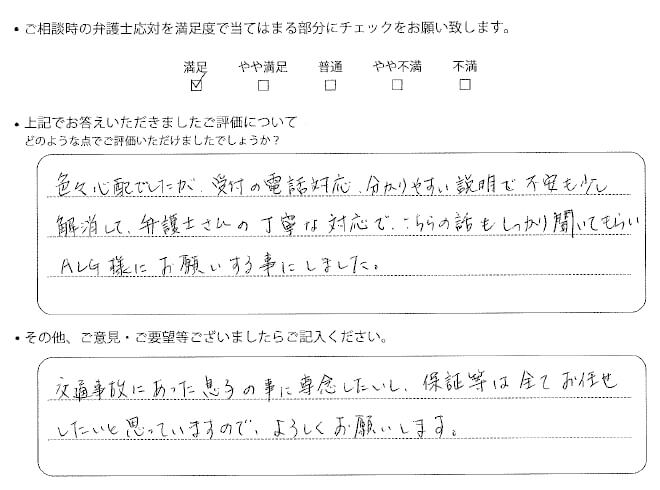 ・ご相談時の弁護士応対を満足度で当てはまる部分にチェックをお願い致します。
満足 やや満足 普通 やや不満 不満
☑ □ □ □ □
・上記でお答えいただきましたご評価について
どのような点でご評価いただけましたでしょうか？
色々心配でしたが、受付の電話対応、分かりやすい説明で不安も少し
解消して、弁護士さんの丁寧な対応で、こちらの話もしっかり聞いてもらい
ALG様にお願いする事にしました。
・その他、ご意見・ご要望等ございましたらご記入ください。
交通事故にあった息子の事に専念したいし、保証等は全てお任せ
したいと思っていますので、よろしくお願いします。